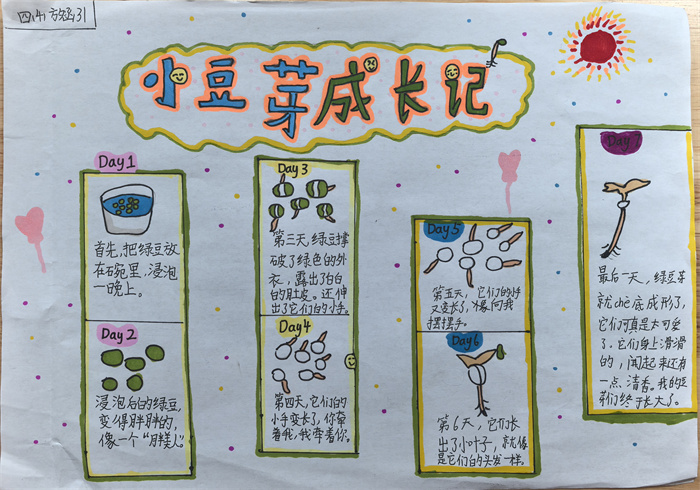 小豆芽成长记
Day1
首先,把绿豆放
在碗里,浸泡
一晚上。
Day2
浸泡后的绿豆,
变得胖胖的,
像一个“胖美人”
Day3
第三天,绿豆撑
破了绿色的外
衣,露出了白白
的肚皮。还伸
出了它们的小手。
Day4
第四天,它们的
小手变长了,你牵
着我,我牵着你。
Day5
第五天,它们的小手
又变长了,像向我
摆摆手。
Day6
第6天,它们长
出了小叶子,就像
是它们的头发一样。
Day7
最后一天,绿豆芽
就chè底成形了,
它们可真是太可爱
了.它们身上滑滑
的,闻起来还有
一点清香。我的豆
芽们终于长大了。